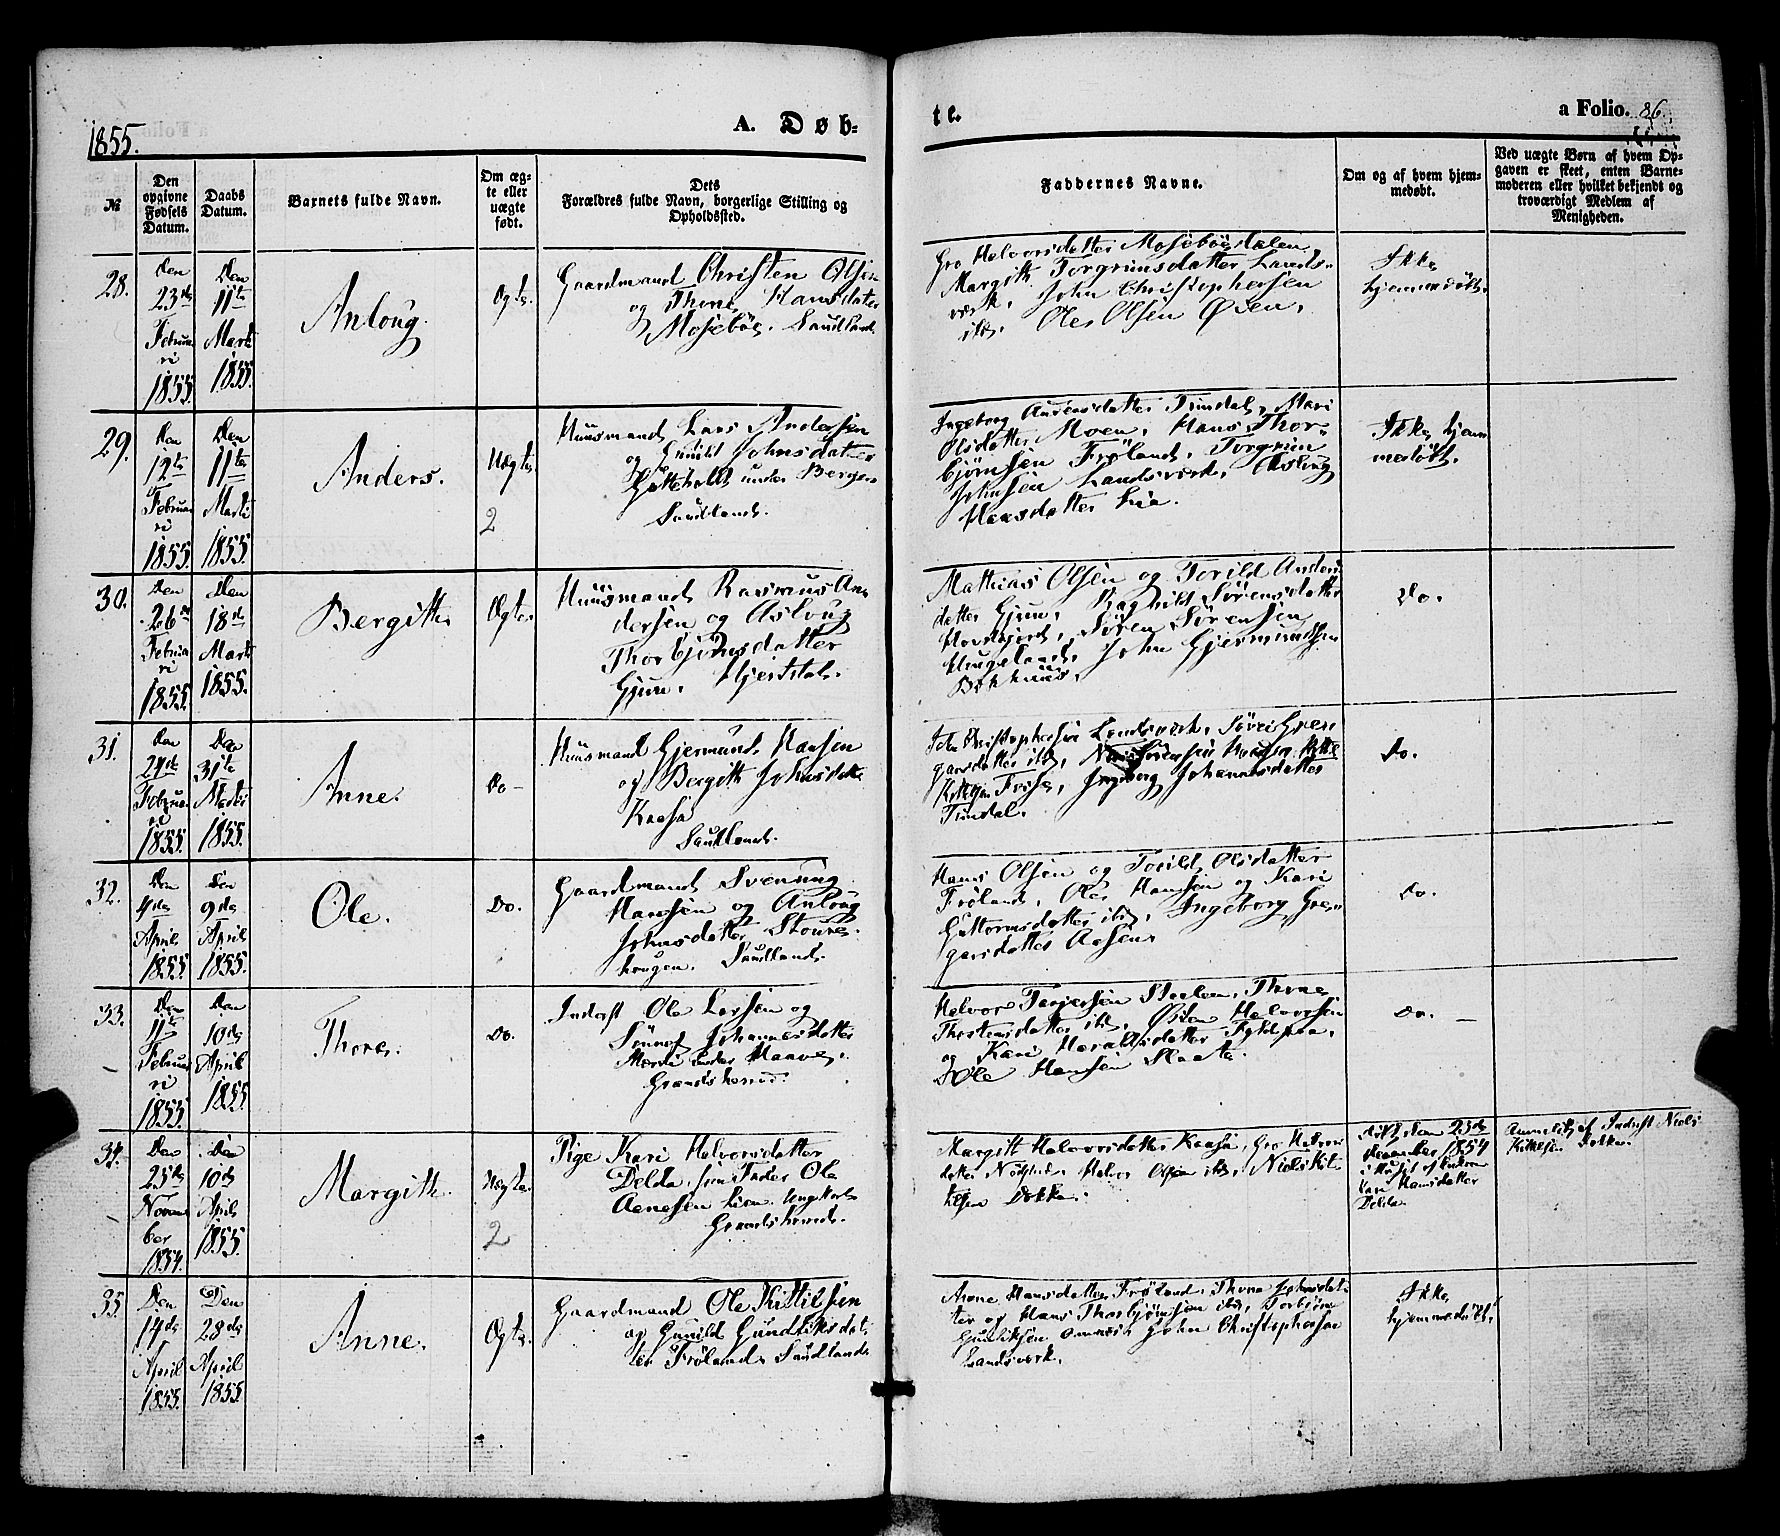 1855.
A. Døb-
te.
a Folio. 86.
№
Den opgivne Fødsels Datum.
Daabs Datum.
Barnets fulde Navn.
Om ægte eller uægte født.
Dets Forældres fulde Navn, borgerlige Stilling og Opholdssted.
Faddernes Navne.
Om og af hvem hjemmedøbt.
Ved uægte Børn af hvem Opgaven er skeet, enten Barnemoderen eller hvilket bekjendt og troværdigt Medlem af Menigheden.
28.
Den
23de
Februa
ri
1855
Den
11te
Marti
1855.
Anloug.
Ægte.
Gaardmand Christen Olsen
og Thone Hansdatter
Mosebøe. Saudland.
Gro Halvorsdatter Mosebøedalen,
Margith Torgrimsdatter Lands-
verk, John Christophersen
ibd, Ole Olsen Øsen.
Ikke
hjemmedøbt.
29.
Den
12te
Februa
ri
1855.
Den
11te
Marti
1855.
Anders.
Uægte.
2
Huusmand Lars Andersen
og Gunild Johnsdatter
under Bergen
Saudland.
Ingeborg Tindal, Mari
Olsdatter Moen, Hans Thor-
bjørnsen Frøland, Torgrim
Johnsen Landsverk, Aslaug
Hansdatter Lia.
Ikke hjem
medøbt.
30.
Den
26de
Februa
ri
1855.
Den
18de
Marti
1855.
Bergithe
Ægte.
Huusmand Rasmus An-
dersen og Asloug
Thorbjørnsdatter
Gjuve. Hjertdal.
Mathias Olsen og Torild Anders
datter Gjuve, Raghild Sørensdatter
Søren Sørensen
Haugeland, John Gjermundsen
Bekhuus.
Do.
31.
Den
24de
Februa
ri
1855.
Den
31te
Marti
1855.
Anne.
Do -
Huusmand Gjermund Hansen
og Bergith Johnsdatter
Kaasa
Saudland.
John Christophersen Landsverk,
garsdatter ibd,
Fosse, Ingeborg Johannesdatter
Tindal.
Do.
32.
Den
4de
April
1855.
Den
9de
April
1855.
Ole.
Do.
Gaardmand Svenung
Hansen og Anloug
Johnsdatter Stoure-
haugen. Saudland.
Hans Olsen og Torild Olsdatter
Frøland, Ole Hansen og Kari
Guttormsdatter ibd, Ingeborg Gre-
garsdatter Aasen.
Do.
33.
Den
11te
Februa
ri
1855.
Den
10de
April
1855.
Thore.
Do.
Inderst Ole Larsen og
Johannesdatter
under Haave.
Grandsherred.
Halvor Tarjersen Thone
Thostensdatter ibd, Østen Halvorsen
og Kari Haraldsdatter
Ole Hansen Slaata.
Do.
34.
Den
25de
Novem
ber
1854.
Den
10de
April
1855
Margith.
Uægte.
2
Pige Kari Halvorsdatter
Delda, som Fader Ole
Aanesen Lien. Ungkarl
Grandsherred.
Margith Halvorsdatter Kaasa, Gro
datter Halvor Olsen ibd, Niels Kit-
telsen Dokka.
den 23de
December 1854
Hansdatter
Delda.
Anmeldt af Inderst Niels
Kittelsen Dokka.
35.
Den
14de
April
1855.
Den
28de
April
1855.
Anne.
Ægte.
Gaardmand Ole Kittilsen
og Gunild Gundliksdat-
ter Frøland. Saudland.
Anne Hansdatter Frøland, Thone Johnsdat-
ter og Hans Thorbjørnsen ibd, Torbjørn
Gunliksen John Christophersen
Landsverk.
Ikke
hjemmedøbt.